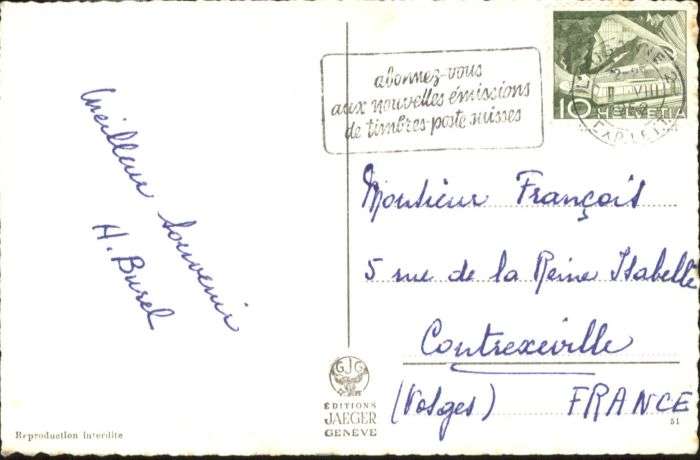 Meilleur souvenir
H. Burel
abonnez-vous
aux nouvelles émissions
de timbres-poste suisses
10 HELVETIA
Monsieur François
5 rue de la Reine Isabelle
Contrexéville
(Vosges) FRANCE
GJG
ÉDITIONS
JAEGER
GENÈVE
Reproduction interdite
51